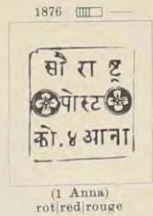 1876
सौ राष्ट्र
पोस्ट
को. ४ आना
(1 Anna)
rot|red|rouge